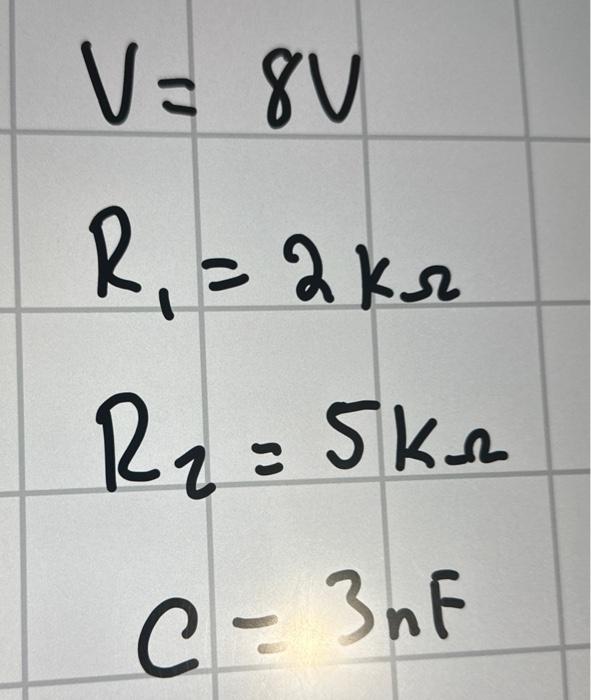 V = 8V
R₁ = 2kΩ
R₂ = 5kΩ
C = 3nF